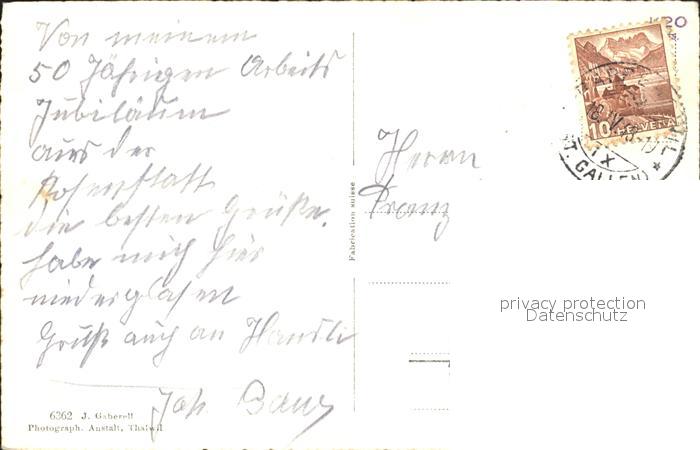 Von meinem
50 Jährigen Arbeits
Jubiläum
aus der
Rosenstatt
die besten Grüße.
habe mich hier
niederglasen
Gruß auch an Hansli
Joh.
6362 J. Gaberell
Photograph. Anstalt, Thalwil
Fabrication suisse
Herrn
Franz
10 HELVETIA
(ST. GALLEN)
20
privacy protection
Datenschutz